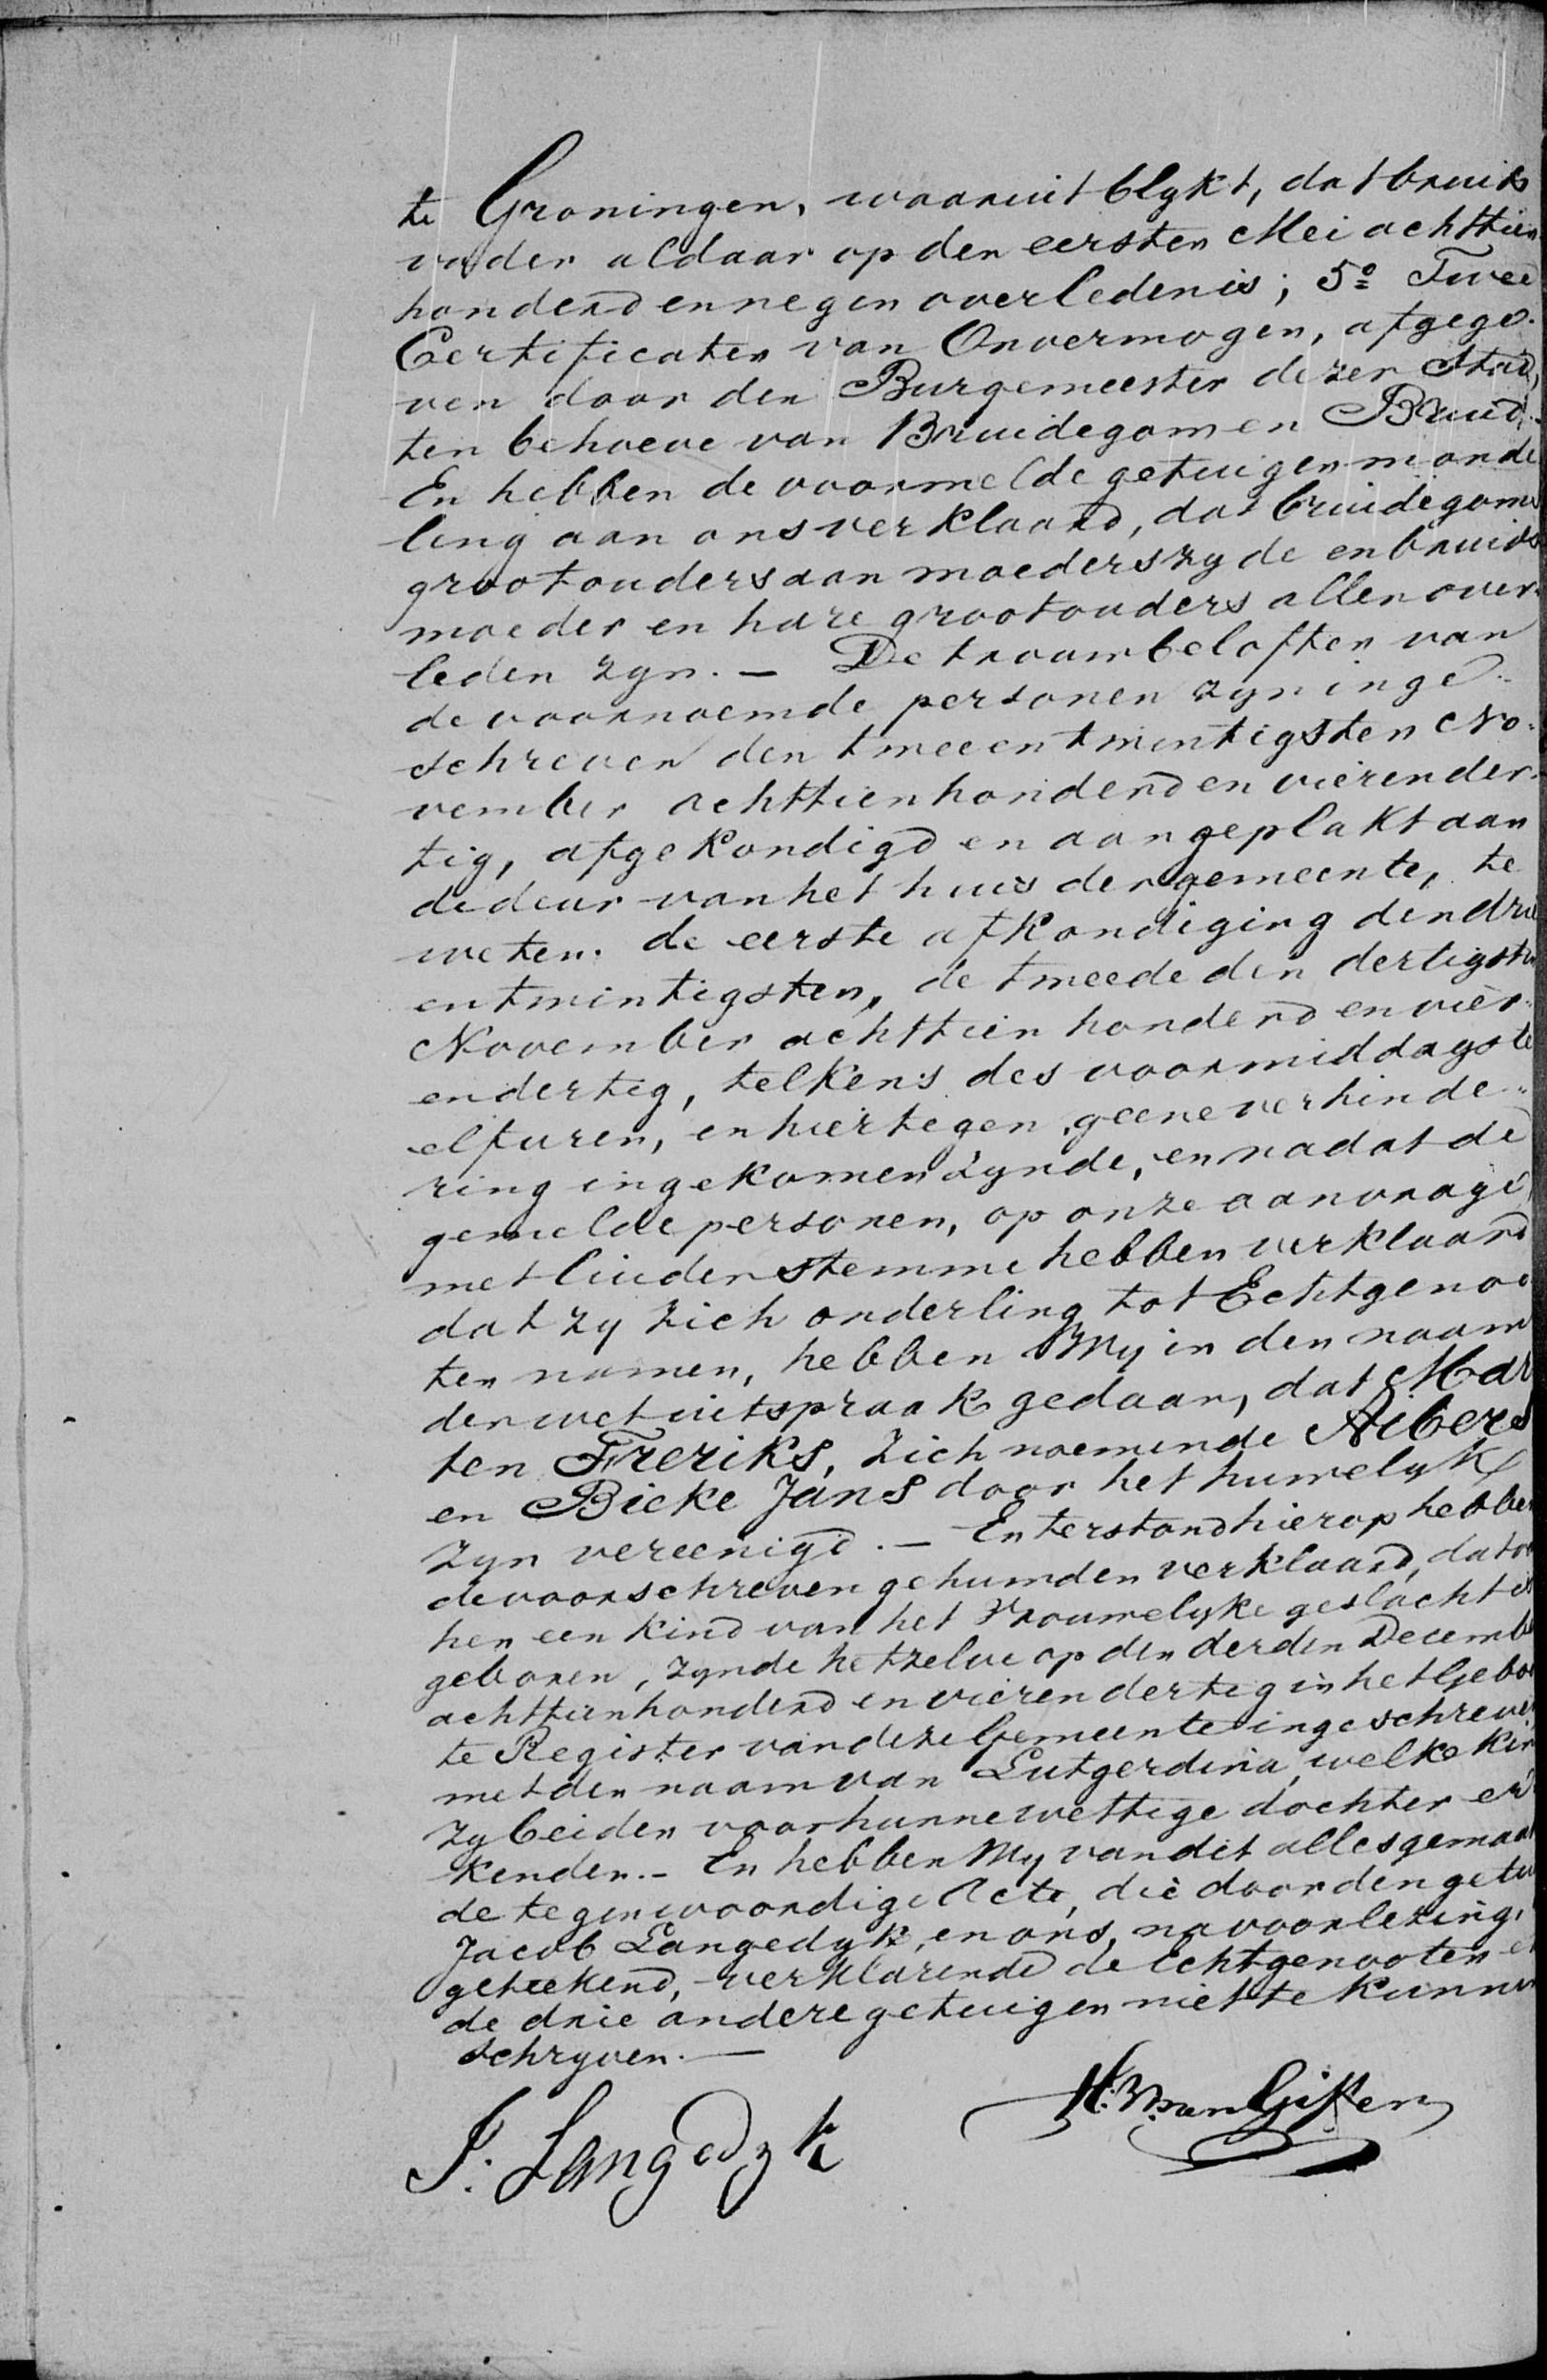 te Groningen, waaruit blykt, dat bruids
vader aldaar op den eersten Mei achttien
honderd en negen overleden is; 5º Twee
Certificaten van Onvermogen, afgege-
ven door den Burgemeester dezer Stad,
ten behoeve van Bruidegom en Bruid.-
En hebben de voormelde getuigen monde
ling aan ons verklaard, dat bruidegoms
grootouders aan moederszyde en bruids
moeder en hare grootouders allen over-
leden zyn. — De trouwbeloften van
de voornoemde personen zyn inge-
schreven den tweeentwintigsten No-
vember achttienhonderd en vierender-
tig, afgekondigd en aangeplakt aan
de deur van het huis der gemeente, te
weten: de eerste afkondiging den drie
entwintigsten, de tweede den dertigsten
November achttien honderd en vier-
endertig, telkens des voormiddags te
elf uren, en hiertegen geene verhinde-
ring ingekomen zynde, en nadat de
gemelde personen, op onze aanvrage,
met luider stemme hebben verklaard
dat zy zich onderling tot Echtgenoo
ten namen, hebben Wy in den naam
der wet uitspraak gedaan, dat Mar
ten Freriks, zich noemende Albers
en Bieke Jans door het huwelyk
zyn vereenigd. — En terstond hierop hebben
de voorschreven gehuwden verklaard, dat
hen een kind van het Vrouwelyke geslacht is
geboren, zynde hetzelve op den derden Decembe
achttienhonderd en vierendertig in het Geboo
te Register van deze Gemeente ingeschreven
met den naam van Lutgerdina, welke kin
zy beiden voor hunne wettige dochter er
kenden. - En hebben Wy van dit alles gemaakt
de tegenwoordige Acte, die door den getui
Jacob Langedyk, en ons, na voorlezing,
geteekend, verklarende de Echtgenooten en
de drie andere getuigen niet te kunnen
schryven. —
J. Langedyk